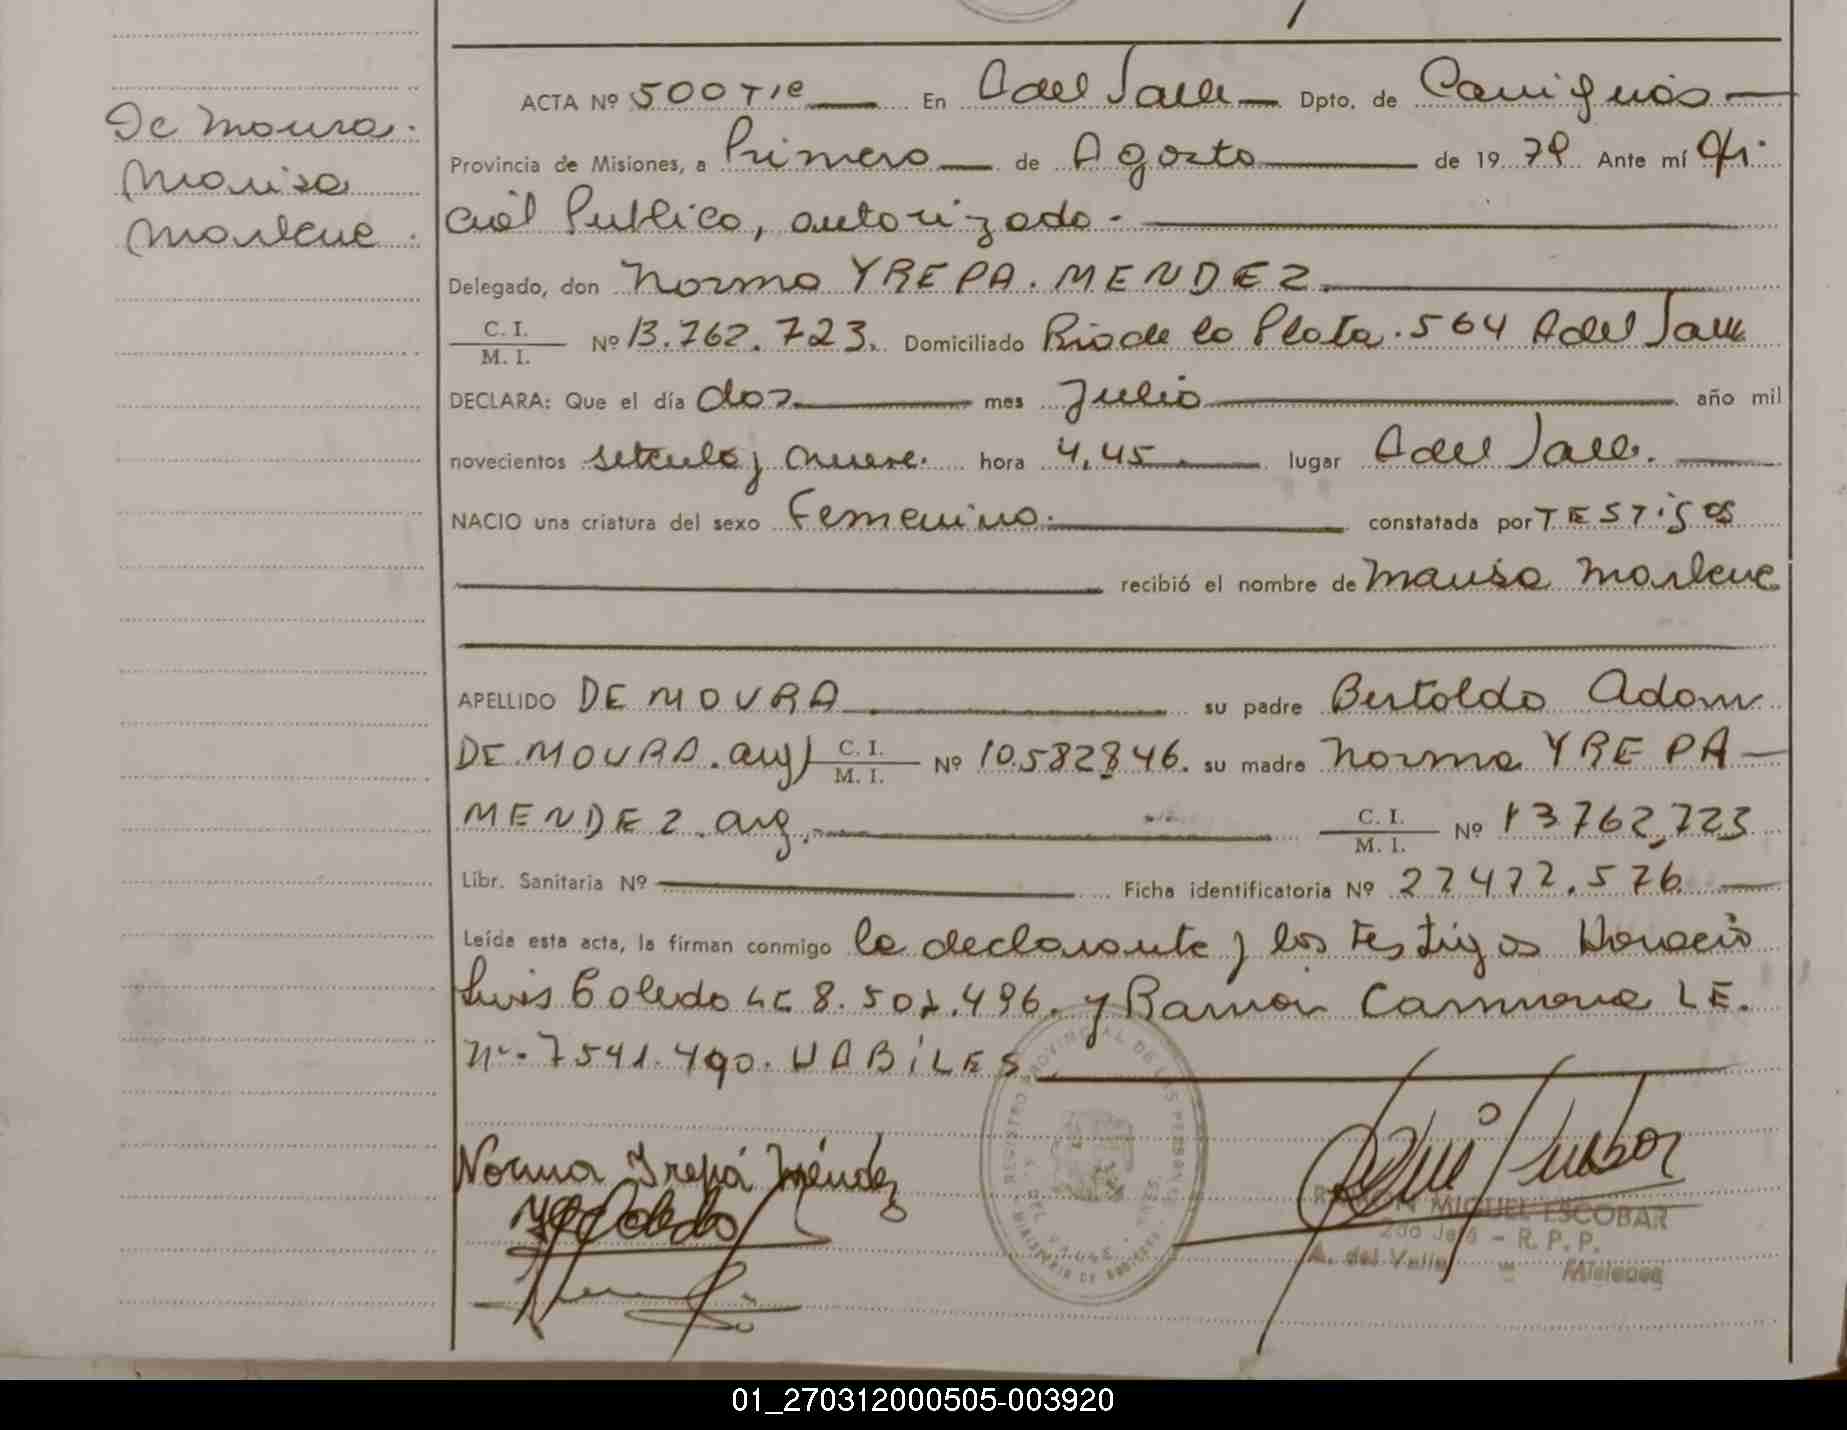 De Moura.
Marisa
Marlene.
ACTA Nº 500 T/e En A del Valle Dpto. de Cainguás
Provincia de Misiones, a Primero de Agosto de 1979 Ante mí Ofi-
cial Publico, autorizado.
Delegado, don Norma YREPA. MENDEZ.
C. I.
M. I. Nº 13.762.723. Domiciliado Rio de la Plata. 564 A del Valle
DECLARA: Que el día dos mes Julio año mil
novecientos setenta y nueve. hora 4,45 lugar A del Valle.
NACIO una criatura del sexo Femenino. constatada por TESTigos
recibió el nombre de Marisa Marlene
APELLIDO DE MOURA su padre Bertoldo Adam
DE MOURA. arg) C. I.
M. I. Nº 10.582846. su madre Norma YREPA
MENDEZ. arg. C. I.
M. I. Nº 13762,723
Libr. Sanitaria Nº Ficha identificatoria Nº 27472.576
Leída esta acta, la firman conmigo la declarante y los testigos Horacio
Luis Toledo 8.501.496. y Ramon LE.
Nº. 7541.490. HABiLES
Norma Yrepá Méndez
REGISTRO PROVINCIAL DE LAS PERSONAS
RAMON MIGUEL ESCOBAR
2do Jefe - R. P. P.
A. del Valle - Misiones
01_270312000505-003920